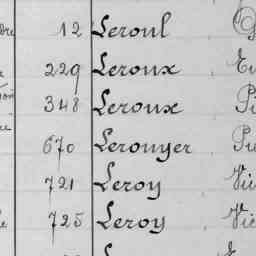 12 Leroul
229 Leroux
348 Leroux
670 Lerouyer
721 Leroy
725 Leroy